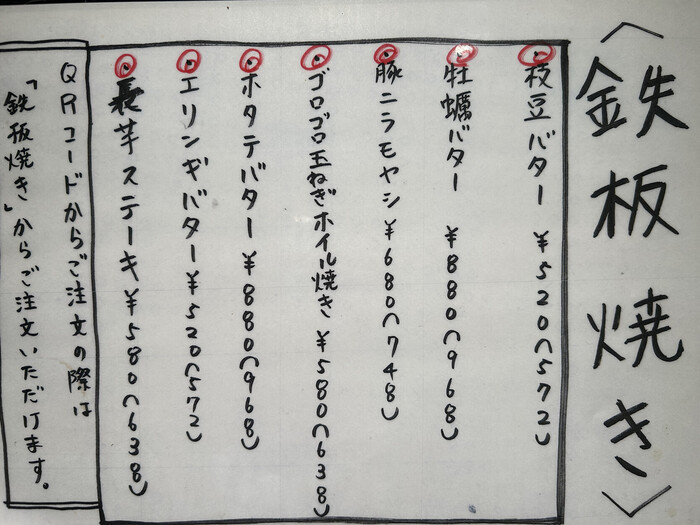 〈鉄板焼き〉
枝豆バター ¥520(572)
牡蠣バター ¥880(968)
豚ニラモヤシ ¥680(748)
ゴロゴロ玉ねぎホイル焼き ¥580(638)
ホタテバター ¥880(968)
エリンギバター ¥520(572)
長芋ステーキ ¥580(638)
QRコードからご注文の際は
「鉄板焼き」からご注文いただけます。